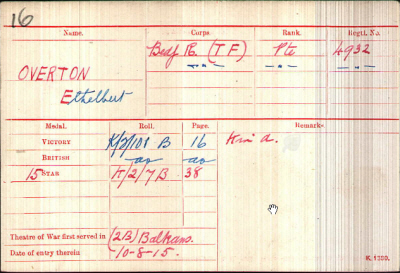 16
Name. Corps. Rank. Regtl. No.
OVERTON Bedf R. (T F) Pte 4932
Ethelbert -"- -"- -"-
Medal. Roll. Page. Remarks.
VICTORY K/2/101 B 16
BRITISH do do
15 STAR K/2/7B 38
Theatre of War first served in (2B) Balkans.
Date of entry therein 10-8-15.
K 1380.